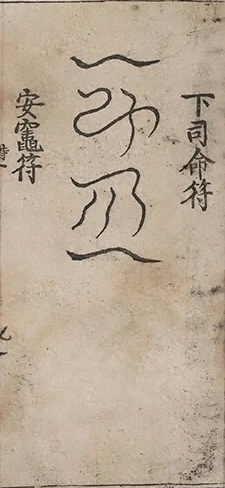 下司命符
安竈符